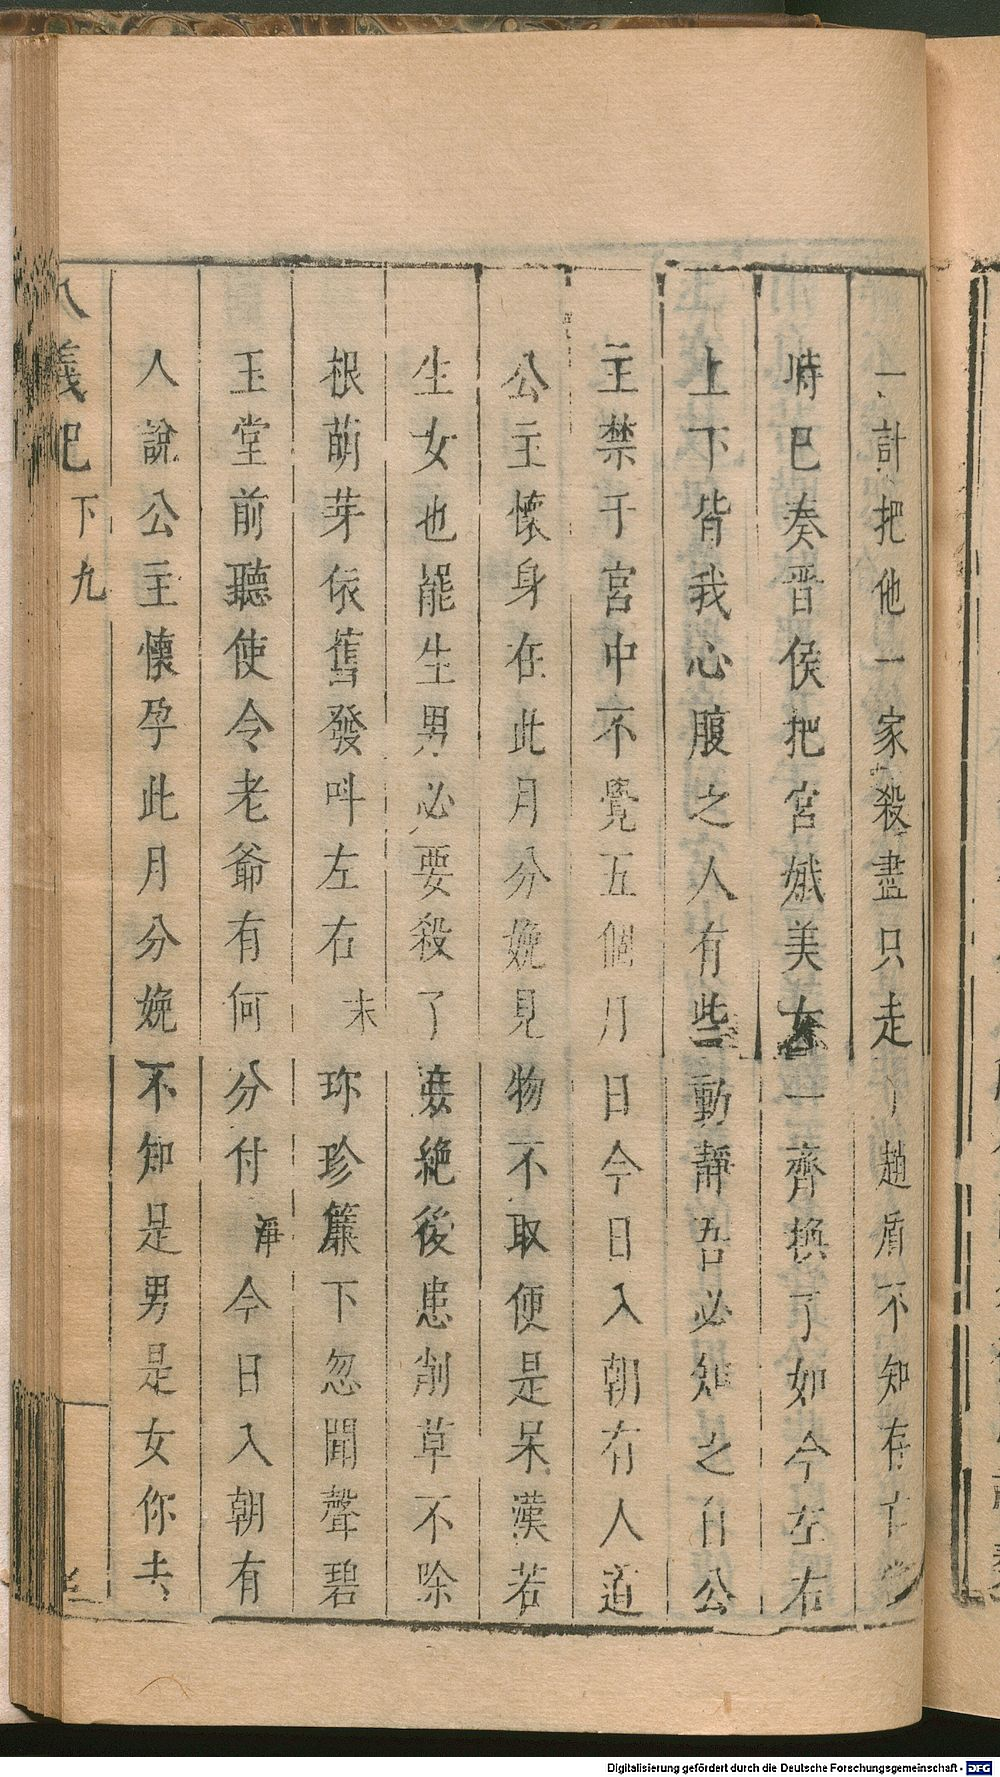 一計把他一家殺盡只走了趙盾不知存亡當
時已奏晋侯把宮娥美女一齊換了如今左右
上下皆我心腹之人有些動靜吾必知之自公
主禁于宮中不覺五個月日今日入朝有人道
公主懷身在此月分娩見物不取便是呆漢若
生女也罷生男必要殺了無絕後患削草不除
根萌芽依舊發呌左右 末 珎珍簾下忽聞聲碧
玉堂前聽使令老爺有何分付 淨 今日入朝有
人說公主懷孕此月分娩不知是男是女你去
八義記 下 九
Digitalisierung gefördert durch die Deutsche Forschungsgemeinschaft - DFG